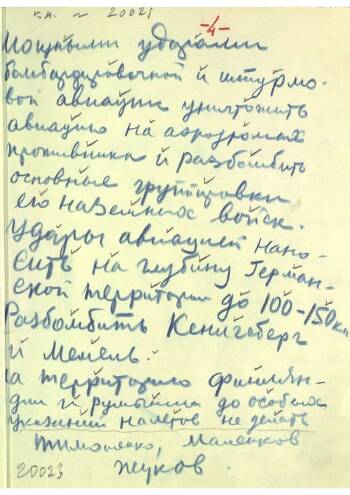 к.н. 20021
-4-
Мощными ударами
бомбардировочной и штурмо-
вой авиации уничтожить
авиацию на аэродромах
противника и разбомбить
основные группировки
его наземных войск.
Удары авиацией нано-
сить на глубину Герман-
ской территории до 100-150 км
Разбомбить Кенигсберг
и Мемель.
На территорию Финлян-
дии и Румынии до особых
указаний налетов не делать
Тимошенко, Маленков
Жуков.
20023